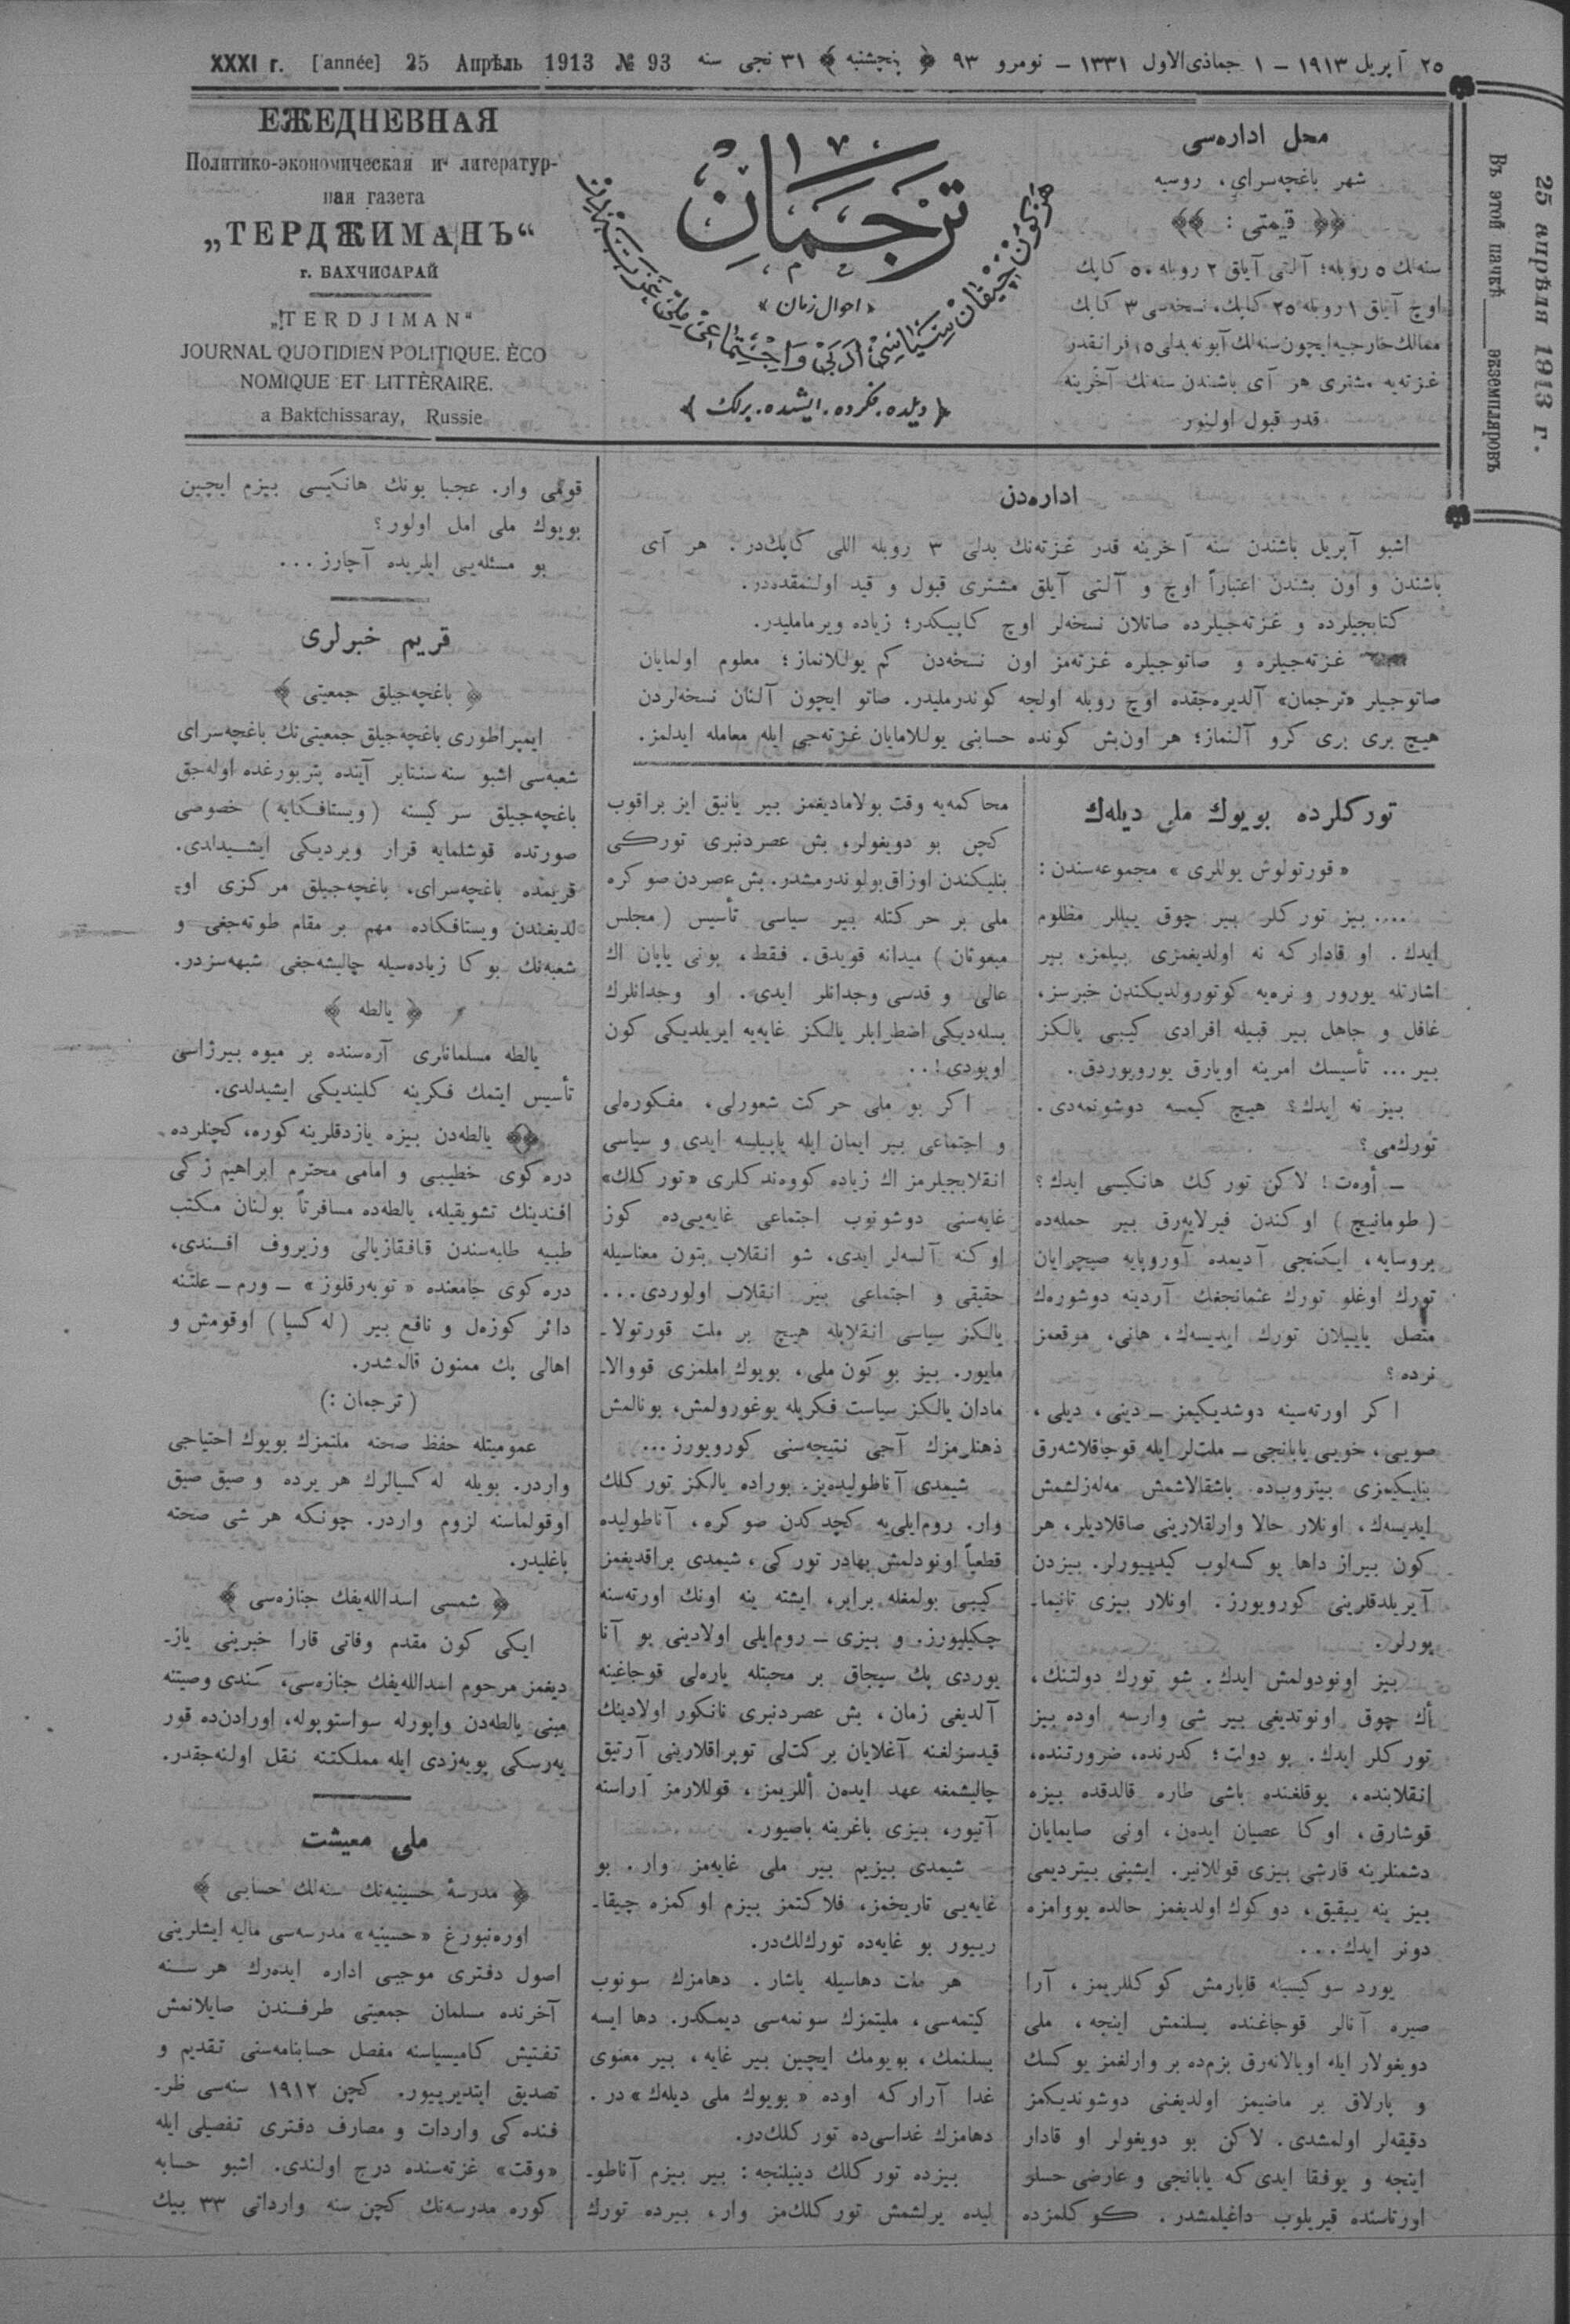 XXXI г. [année] 25 Апрѣль 1913 № 93 ٣١ نجى سنه ﴿ پنجشنبه ﴾ ٢٥ آپريل ١٩١٣ – ١ جماذى‌الاول ١٣٣١ – نومرو ٩٣
ЕЖЕДНЕВНАЯ
Политико-экономическая и литератур-
ная газета
„ТЕРДЖИМАНЪ“
г. БАХЧИСАРАЙ
„TERDJIMAN“
JOURNAL QUOTIDIEN POLITIQUE. ÈCO
NOMIQUE ET LITTÈRAIRE.
a Baktchissaray, Russie
ترجمان
« احوال زمان »
﴿ ديلده. فكرده. ايشده. برلك ﴾
محل اداره‌سى
شهر باغچه‌سراى، روسيه
﴿﴿ قيمتى : ﴾﴾
سنه‌لك ٥ روبله؛ آلتى آيلق ٢ روبله ٥٠ كاپك
اوچ آيلق ١ روبله ٢٥ كاپك، نسخه‌سى ٣ كاپك
غزته‌يه مشترى هر آى باشندن سنه‌نك آخرينه
قدر قبول اولنور
25 апрѣля 1913 г.
Въ этой пачкѣ ____ экземпляровъ
اداره‌دن
اشبو آپريل باشندن سنه آخرينه قدر غزته‌نك بدلى ٣ روبله اللى كاپك‌در. هر آى
باشندن و اون بشندن اعتباراً اوچ و آلتى آيلق مشترى قبول و قيد اولنمقده‌در.
كتابجيلرده و غزته‌جيلرده صاتلان نسخه‌لر اوچ كاپيكدر؛ زياده ويرماملیدر.
غزته‌جيلره و صاتوجيلره غزته‌مز اون نسخه‌دن كم يوللانماز؛ معلوم اولمايان
صاتوجيلر «ترجمان» آلديره‌جقده اوچ روبله اولجه كوندرمليدر. صاتو ايچون آلنان نسخه‌لردن
هيچ برى برى كرو آلنماز؛ هر اون‌بش كونده حسابنى يوللامايان غزته‌جى ايله معامله ايدلمز.
توركلرده بويوك ملى ديله‌ك
« قورتولوش يوللرى » مجموعه‌سندن :
.... بيز توركلر بير چوق ييللر مظلوم
ايدك. او قادار كه نه اولديغمزى بيلمز، بير
اشارتله يورور و نره‌يه كوتورولديكندن خبرسز،
غافل و جاهل بير قبيله افرادى كيبى يالكز
بير ... تأسيسك امرينه اويارق يورويوردق.
بيز نه ايدك؟ هيچ كيمسه دوشونمه‌دى.
تورك‌مى؟
ــ أوه‌ت! لاكن تورك‌ك هانكيسى ايدك؟
(طومانيچ) اوكندن فيرلايه‌رق بير حمله‌ده
بروسايه، ايكنجى آديمده آوروپايه صيچرايان
تورك اوغلو تورك عثمانجغك آردينه دوشوره‌ك
متصل ياييلان تورك ايديسه‌ك، هانى، موقعمز
نرده؟
اكر اورته‌سينه دوشديكيمز ــ دينى، ديلى،
صويى، خويى يابانجى ــ ملت‌لر ايله قوجاقلاشه‌رق
بنليكيمزى بيتروب‌ده باشقالاشمش مه‌له‌زلشمش
ايديسه‌ك، اونلار حالا وارلقلارينى صاقلاديلر، هر
كون بيراز داها يوكسه‌لوب كيدييورلر. بيزدن
آيريلدقلرينى كورويورز. اونلار بيزى تانيما-
يورلر.
بيز اونودولمش ايدك. شو تورك دولتنك،
أك چوق اونوتديغى بير شى وارسه اوده بيز
توركلر ايدك. بو دولت؛ كدرنده، ضرورتنده،
انقلابنده، يوقلغنده باشى طاره قالدقده بيزه
قوشارق، اوكا عصيان ايده‌ن، اونى صايمايان
دشمنلرينه قارشى بيزى قوللانير. ايشينى بيترديمى
بيز ينه ييقيق، دوكوك اولديغمز حالده يووامزه
دونر ايدك...
يورد سوكيسيله قابارمش كوكللريمز، آرا
صيره آنالر قوجاغنده بسلنمش اينجه، ملى
دويغولار ايله اويالانه‌رق بزم‌ده بر وارلغمز يوكسك
و پارلاق بر ماضيمز اولديغنى دوشونديكمز
دقيقه‌لر اولمشدى. لاكن بو دويغولر او قادار
اينجه و يوفقا ايدى كه يابانجى و عارضى حسلر
اورتاسنده قيريلوب داغيلمشدر. كوكلمزده
محاكمه‌يه وقت بولاماديغمز بير يانيق ايز براقوب
كچن بو دويغولر، بش عصردنبرى توركى
بنليكندن اوزاق‌بولوندرمشدر. بش عصردن صوكره
ملى بر حركتله بير سياسى تأسيس (مجلس
مبعوثان) ميدانه قويدق. فقط، بونى يايان اك
عالى و قدسى وجدانلر ايدى. او وجدانلرك
بسله‌ديكى اضطرابلر يالكز غايه‌يه ايريلديكى كون
اويودى!..
اكر بو ملى حركت شعورلى، مفكوره‌لى
و اجتماعى بير ايمان ايله ياپيلسه ايدى و سياسى
انقلابجيلرمز اك زياده كووه‌ندكلرى «توركلك»
غايه‌سنى دوشونوب اجتماعى غايه‌يى‌ده كوز
اوكنه آلسه‌لر ايدى، شو انقلاب بتون معناسيله
حقيقى و اجتماعى بير انقلاب اولوردى...
يالكز سياسى انقلابله هيچ بر ملت قورتولا-
مايور. بيز بو كون ملى، بويوك املمزى قووالا-
مادان يالكز سياست فكريله يوغورولمش، بونالمش
ذهنلرمزك آجى نتيجه‌سنى كورويورز...
شيمدى آناطوليده‌يز. بوراده يالكز توركلك
وار. روم‌ايلى‌يه كچدكدن صوكره، آناطوليده
قطعياً اونودلمش بهادر توركى، شيمدى براقديغمز
كيبى بولمغله برابر، ايشته ينه اونك اورته‌سنه
چكيليورز. و بيزى ــ روم‌ايلى اولادينى بو آنا
يوردى پك سيجاق بر محبتله ياره‌لى قوجاغينه
آلديغى زمان، بش عصردنبرى نانكور اولادينك
قيدسزلغنه آغلايان بركتلى توپراقلارينى آرتيق
چاليشمغه عهد ايده‌ن أللريمز، قوللارمز آراسنه
آتيور، بيزى باغرينه باصيور.
شيمدى بيزيم بير ملى غايه‌مز وار. بو
غايه‌يى تاريخمز، فلاكتمز بيزم اوكمزه چيقا-
رييور بو غايه‌ده تورك‌لك‌در.
هر ملت دهاسيله ياشار. دهامزك سونوب
كيتمه‌سى، مليتمزك سونمه‌سى ديمكدر. دها ايسه
بسلنمك، بويومك ايچين بير غايه، بير معنوى
غدا آرار كه اوده «بويوك ملى ديله‌ك» در.
دهامزك غداسى‌ده توركلك‌در.
بيزده توركلك دينيلنجه: بير بيزم آناطو-
ليده يرلشمش توركلك‌مز وار، بيرده تورك
قومى وار. عجبا بونك هانكيسى بيزم ايچين
بويوك ملى امل اولور؟
بو مسئله‌يى ايلريده آچارز...
قريم خبرلرى
﴿ باغچه‌جيلق جمعيتى ﴾
ايمپراطورى باغچه‌جيلق جمعيتى‌نك باغچه‌سراى
شعبه‌سى اشبو سنه سنتابر آينده پتربورغده اوله‌جق
باغچه‌جيلق سركيسنه (ويستافكايه) خصوصى
صورتده قوشلمايه قرار ويرديكى ايشيدلدى.
قريمده باغچه‌سراى، باغچه‌جيلق مركزى او-
لديغندن ويستافكاده مهم بر مقام طوته‌جغى و
شعبه‌نك بوكا زياده‌سيله چاليشه‌جغى شبهه‌سزدر.
﴿ يالطه ﴾
يالطه مسلمانلرى آره‌سنده بر ميوه بيرژاسى
تأسيس ايتمك فكرينه كلينديكى ايشيدلدى.
يالطه‌دن بيزه يازدقلرينه كوره، كچنلرده
دره‌كوى خطيبى و امامى محترم ابراهيم زكى
افندينك تشويقيله، يالطه‌ده مسافرتاً بولنان مكتب
طبيه طلبه‌سندن قافقازيالى وزيروف افندى،
دره‌كوى جامعنده «توبه‌رقلوز» ــ ورم ــ علتنه
دائر كوزه‌ل و نافع بير (له‌كسيا) اوقومش و
اهالى پك ممنون قالمشدر.
(ترجمان:)
عموميتله حفظ صحته ملتمزك بويوك احتياجى
واردر. بويله له‌كسيالرك هر يرده و صيق صيق
اوقولماسنه لزوم واردر. چونكه هر شى صحته
باغليدر.
﴿ شمسى اسدالله‌يفك جنازه‌سى ﴾
ايكى كون مقدم وفاتى قارا خبرينى ياز-
ديغمز مرحوم اسدالله‌يفك جنازه‌سى، كندى وصيتنه
مبنى يالطه‌دن واپورله سواستوپوله، اورادن‌ده قور
يه‌رسكى پويه‌زدى ايله مملكتنه نقل اولنه‌جقدر.
ملى معيشت
﴿ مدرسهٔ حسينيه‌نك سنه‌لك حسابى ﴾
اوره‌نبورغ «حسينيه» مدرسه‌سى ماليه ايشلرينى
اصول دفترى موجبى اداره ايده‌رك هر سنه
آخرنده مسلمان جمعيتى طرفندن صايلانمش
تفتيش كاميسياسنه مفصل حسابنامه‌سنى تقديم و
تصديق ايتديرييور. كچن ١٩١٢ سنه‌سى ظر-
فنده‌كى واردات و مصارف دفترى تفصيلى ايله
«وقت» غزته‌سنده درج اولندى. اشبو حسابه
كوره مدرسه‌نك كچن سنه وارداتى ٣٣ بيك